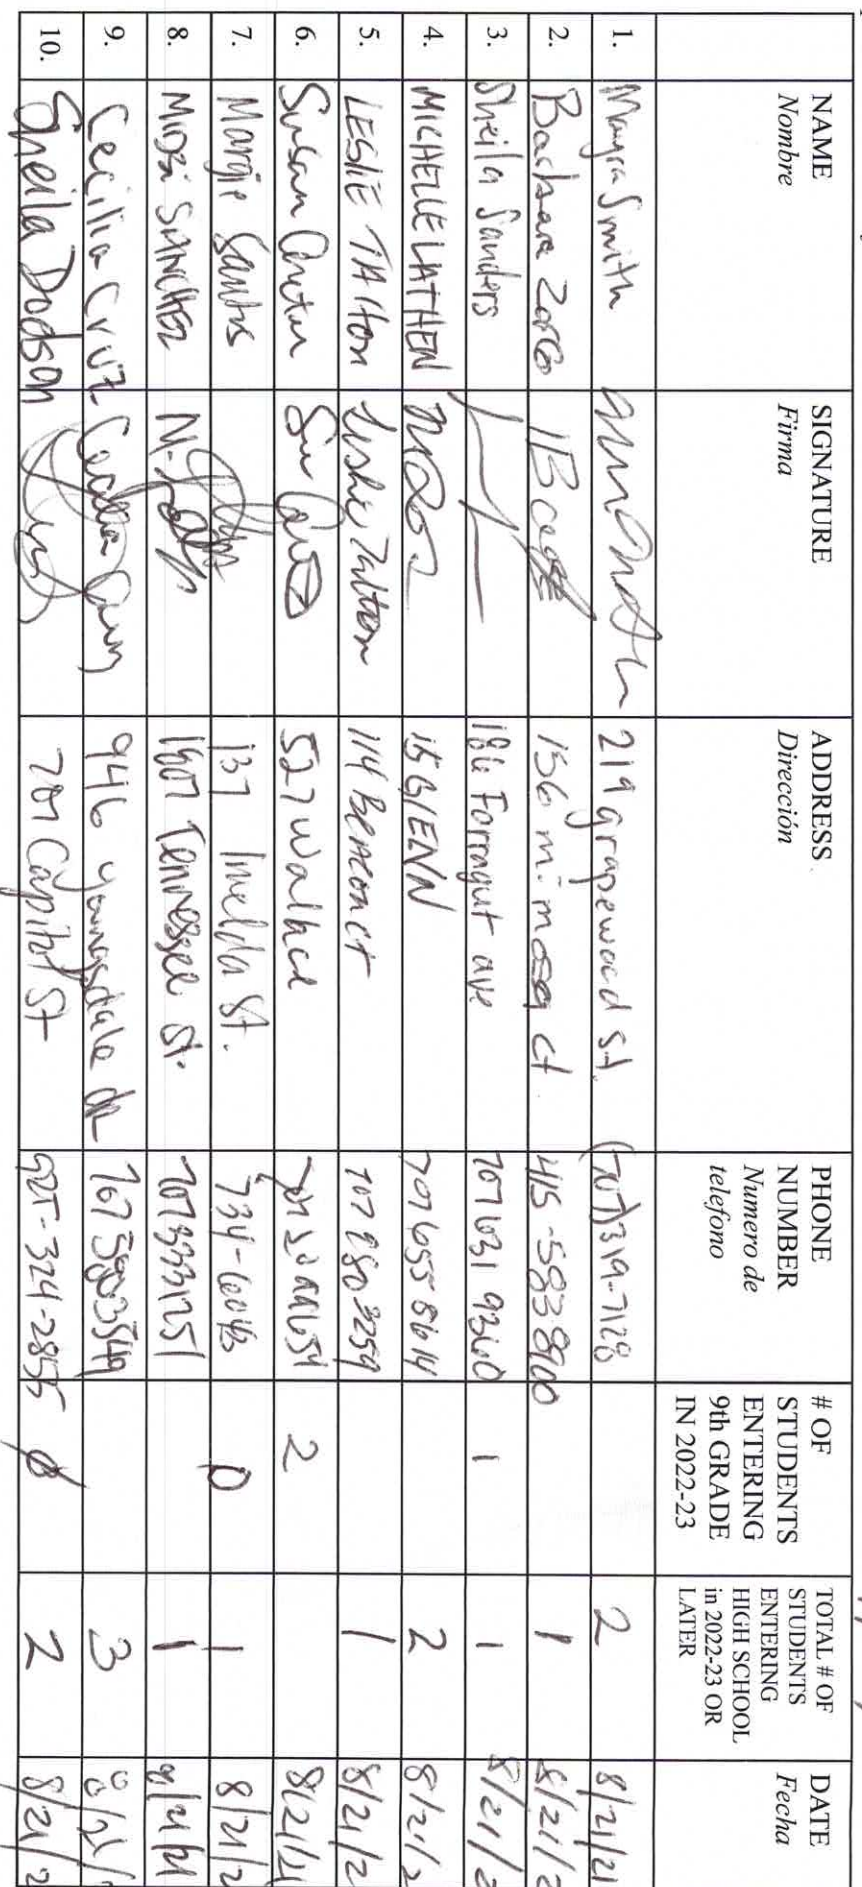 NAME Nombre SIGNATURE Firma ADDRESS Dirección PHONE NUMBER Numero de telefono # OF STUDENTS ENTERING 9th GRADE IN 2022-23 TOTAL # OF STUDENTS ENTERING HIGH SCHOOL in 2022-23 OR LATER DATE Fecha
1. Mayra Smith 219 grapewood st. (707)319-7128 2 8/21/21
2. Barbara 156 mimosa ct. 415-583 8900 1 8/21/2
3. Sheila Sanders 186 Farragut ave 707 631 9360 1 1 8/21/2
4. MICHELLE LATHEN 15 GlENN 707 655 8614 2 8/21/2
5. LESLIE TAlton Leslie Talton 114 Beacon ct 707 980 3259 1 8/21/2
6. Susan Sue 527 Wallace 2 8/21/21
7. Margie Santos 137 Imelda St. 734-6043 0 1 8/21/2
8. SANCHEZ 1907 Tennessee St. 707 333 1751 1
9. Cecilia Cruz Cecilia Cruz 946 youngsdale dr 3 8/21/
10. Sheila Dodson 707 Capitol St 925-324-2855 0 2 8/21/2